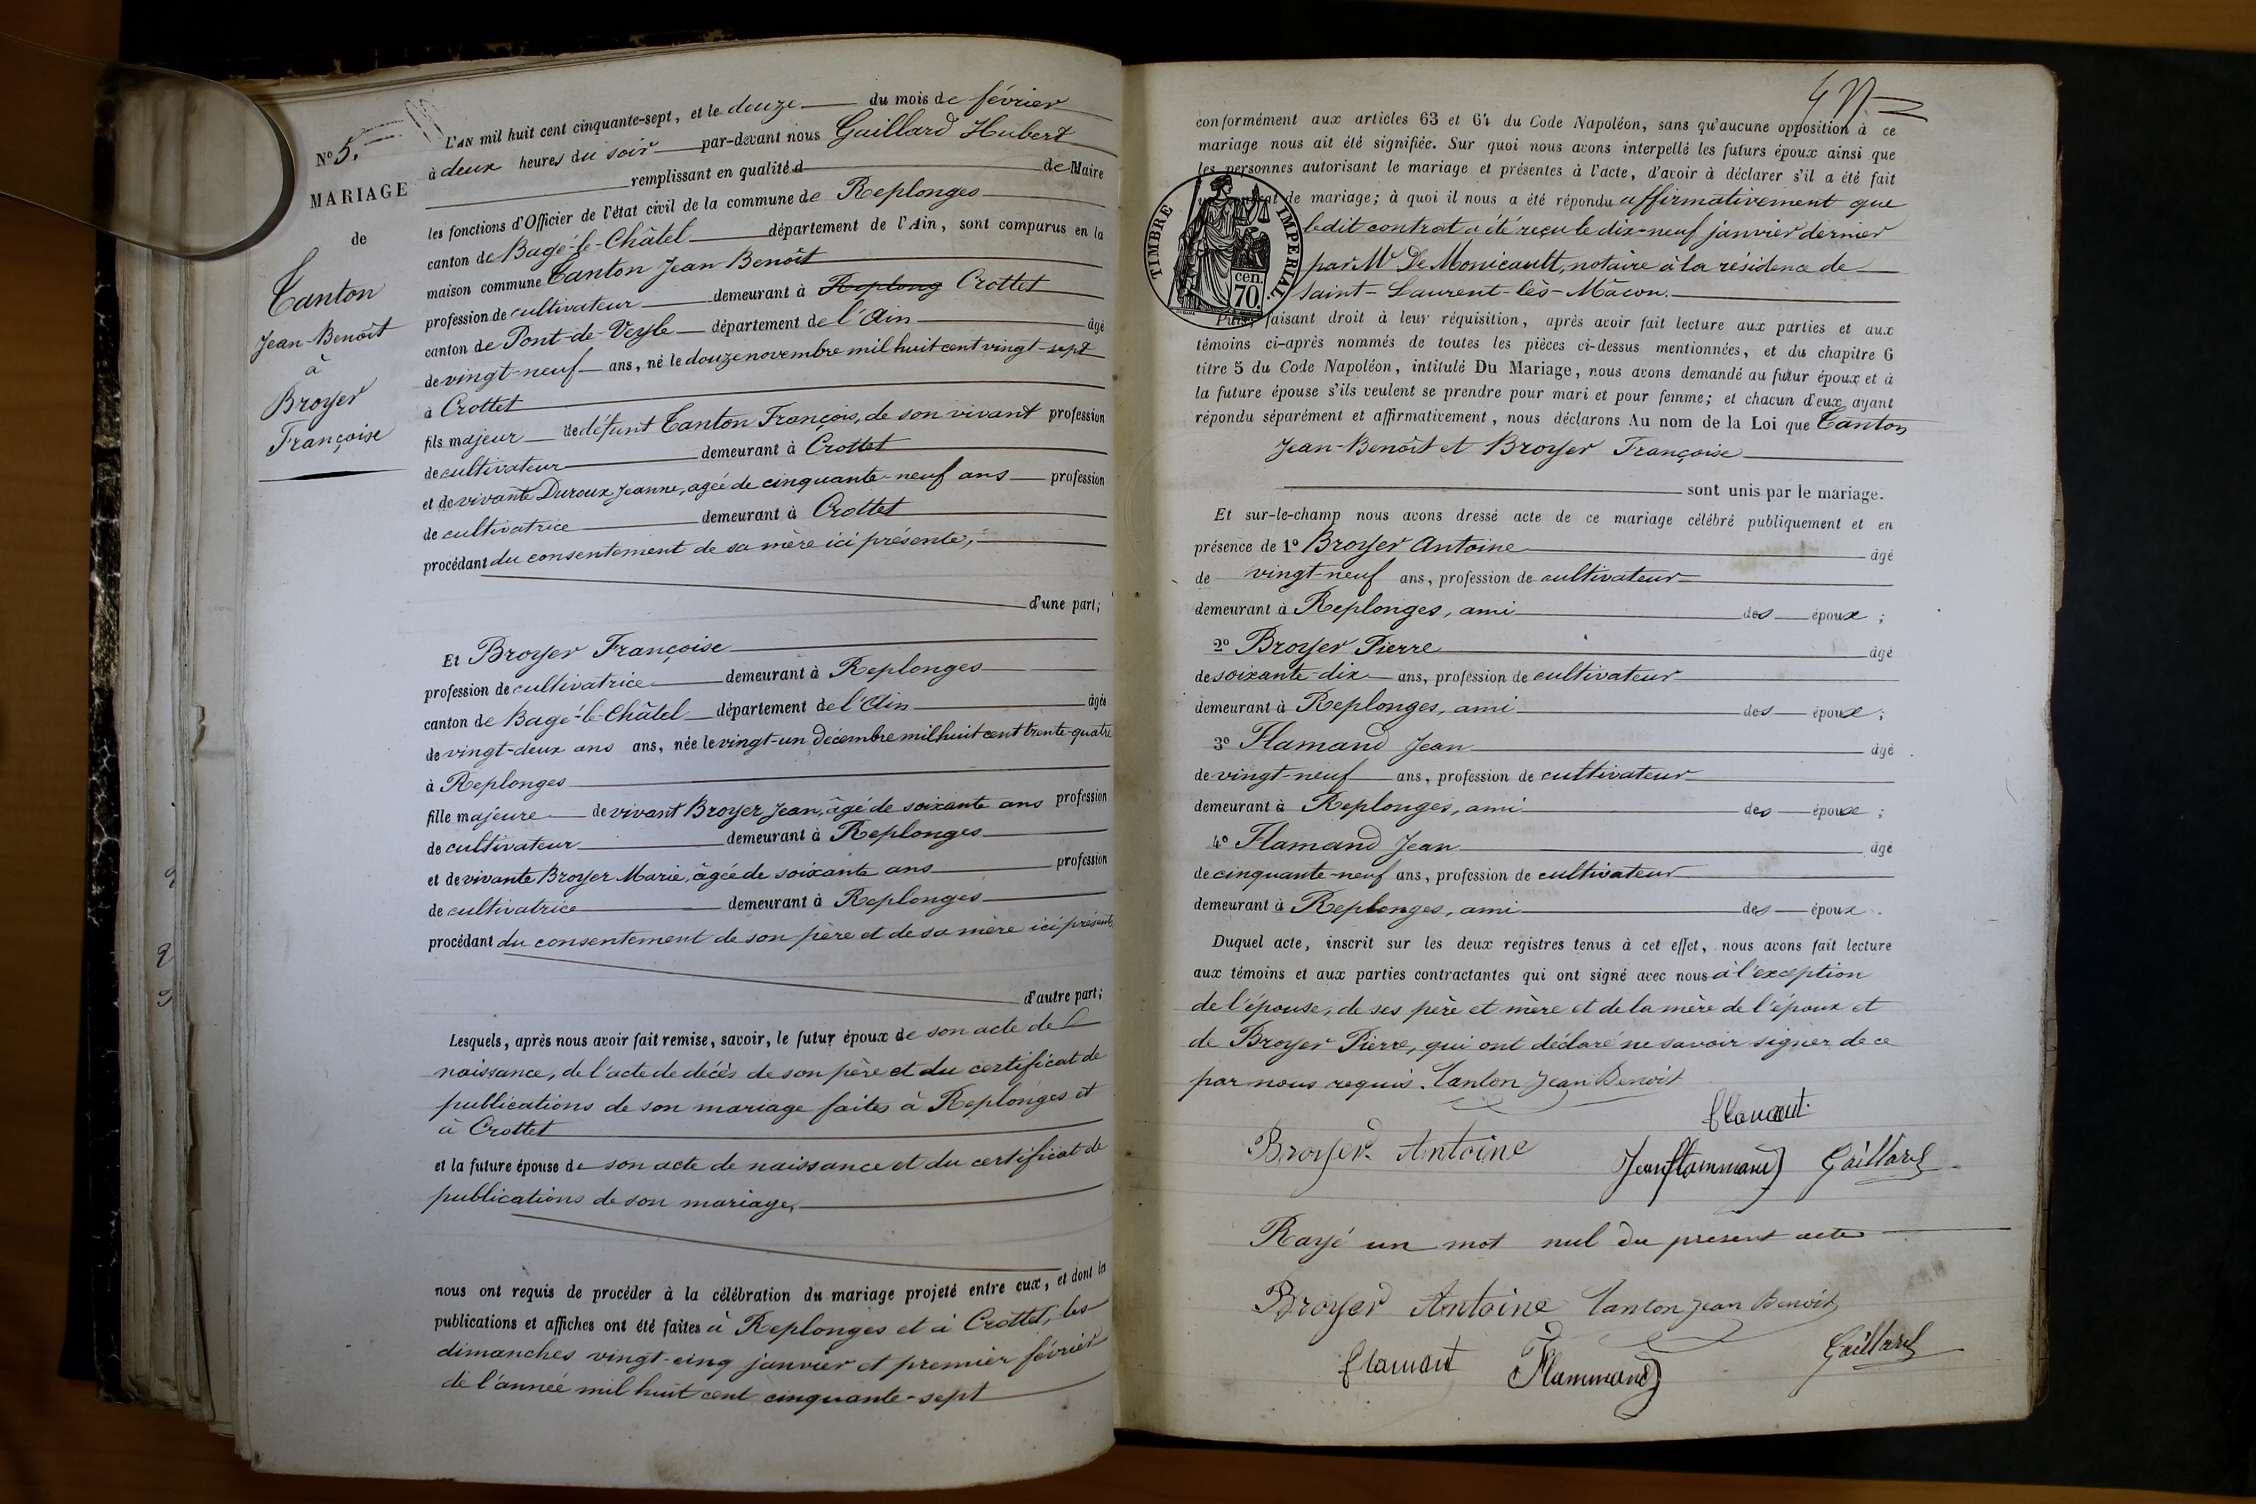 N° 5.
MARIAGE
de
Tanton
Jean-Benoît
à
Broyer
Françoise
L'AN mil huit cent cinquante-sept, et le douze du mois de février
à deux heures du soir par-devant nous Gaillard Hubert
remplissant en qualité d de Maire
les fonctions d'Officier de l'état civil de la commune de Replonges
canton de Bagé-le-Châtel département de l'Ain, sont comparus en la
maison commune Tanton Jean-Benoît
profession de cultivateur demeurant à Replong Crottet
canton de Pont-de-Veyle département de l'Ain âgé
de vingt-neuf ans, né le douze novembre mil huit cent vingt-sept
à Crottet
fils majeur de défunt Tanton François, de son vivant profession
de cultivateur demeurant à Crottet
et de vivante Duroux Jeanne, agée de cinquante-neuf ans profession
de cultivatrice demeurant à Crottet
procédant du consentement de sa mère ici présente,
d'une part;
Et Broyer Françoise
profession de cultivatrice demeurant à Replonges
canton de Bagé-le-Châtel département de l'Ain âgée
de vingt-deux ans ans, née le vingt-un décembre mil huit cent trente-quatre
à Replonges
fille majeure de vivant Broyer Jean, âgé de soixante ans profession
de cultivateur demeurant à Replonges
et de vivante Broyer Marie, âgée de soixante ans profession
de cultivatrice demeurant à Replonges
procédant du consentement de son père et de sa mère ici présents
d'autre part;
Lesquels, après nous avoir fait remise, savoir, le futur époux de son acte de
naissance, de l'acte de décès de son père et du certificat de
publications de son mariage faites à Replonges et
à Crottet
et la future épouse de son acte de naissance et du certificat de
publications de son mariage,
nous ont requis de procéder à la célébration du mariage projeté entre eux, et dont les
publications et affiches ont été faites à Replonges et à Crottet, les
dimanches vingt-cinq janvier et premier février
de l'année mil huit cent cinquante-sept
conformément aux articles 63 et 64 du Code Napoléon, sans qu'aucune opposition à ce
mariage nous ait été signifiée. Sur quoi nous avons interpellé les futurs époux ainsi que
les personnes autorisant le mariage et présentes à l'acte, d'avoir à déclarer s'il a été fait
de mariage; à quoi il nous a été répondu affirmativement que
ledit contrat a été reçu le dix-neuf janvier dernier
par Me De Monicault, notaire à la résidence de
Saint-Laurent-lès-Mâcon.
TIMBRE IMPERIAL.
cen.
70.
Puis, faisant droit à leur réquisition, après avoir fait lecture aux parties et aux
témoins ci-après nommés de toutes les pièces ci-dessus mentionnées, et du chapitre 6
titre 5 du Code Napoléon, intitulé Du Mariage, nous avons demandé au futur époux et à
la future épouse s'ils veulent se prendre pour mari et pour femme; et chacun d'eux ayant
répondu séparément et affirmativement, nous déclarons Au nom de la Loi que Tanton
Jean-Benoît et Broyer Françoise
sont unis par le mariage.
Et sur-le-champ nous avons dressé acte de ce mariage célébré publiquement et en
présence de 1° Broyer Antoine âgé
de vingt-neuf ans, profession de cultivateur
demeurant à Replonges, ami des époux;
2° Broyer Pierre âgé
de soixante-dix ans, profession de cultivateur
demeurant à Replonges, ami des époux;
3° Flamand Jean âgé
de vingt-neuf ans, profession de cultivateur
demeurant à Replonges, ami des époux;
4° Flamand Jean âgé
de cinquante-neuf ans, profession de cultivateur
demeurant à Replonges, ami des époux.
Duquel acte, inscrit sur les deux registres tenus à cet effet, nous avons fait lecture
aux témoins et aux parties contractantes qui ont signé avec nous à l'exception
de l'épouse, de ses père et mère et de la mère de l'époux et
de Broyer Pierre, qui ont déclaré ne savoir signer de ce
par nous requis. Tanton Jean Benoit
flamant
Broyer Antoine Jean flammand Gaillard
Rayé un mot nul du present acte
Broyer Antoine Tanton Jean Benoit
flamant J Flammand Gaillard